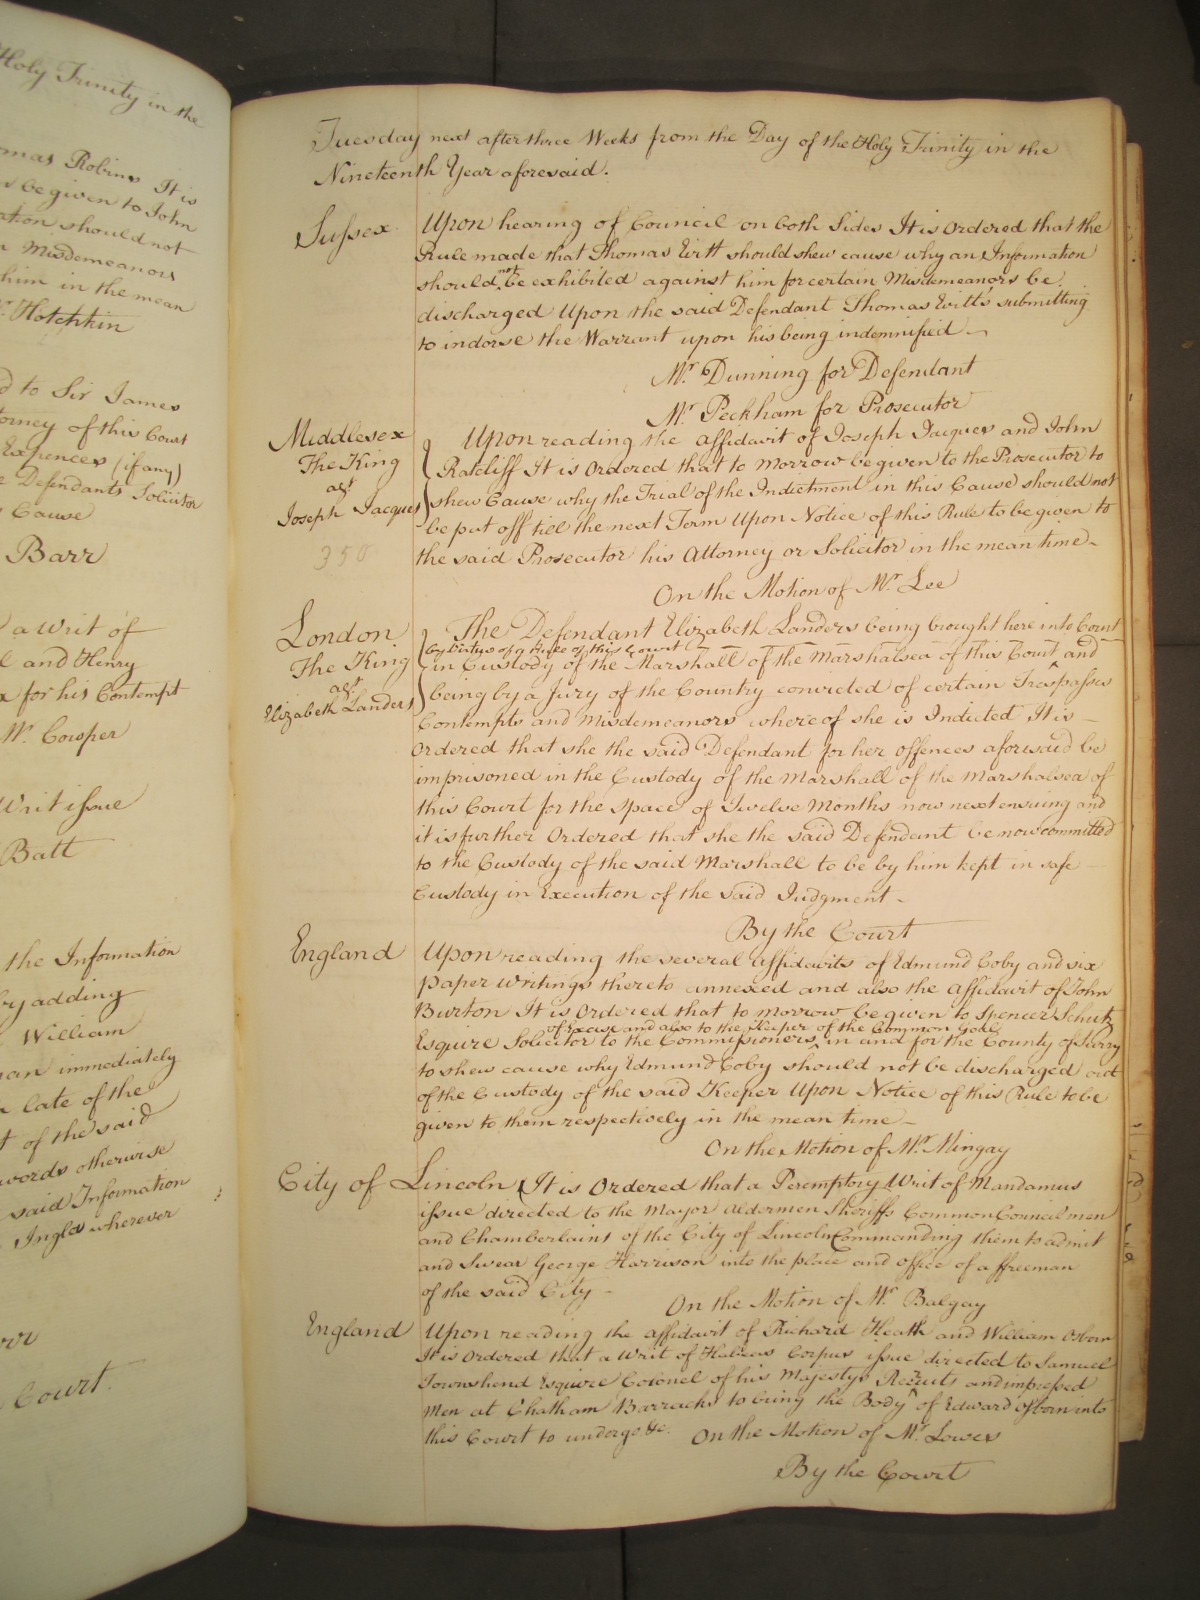 Holy Trinity in the
omas Robins It is
be given to John
ation should not
Misdemeanors
him in the mean
Hotchkin
d to Sir James
torney of this Court
Expences (if any)
Defendants Solicitor
Cause
Barr
a Writ of
and Henry
for his Contempt
Mr. Cowper
Writ issue
Batt
the Information
by adding
William
immediately
late of the
of the said
words otherwise
said Information
Inglos wherever
Court.
Tuesday next after three Weeks from the Day of the Holy Trinity in the
Nineteenth Year aforesaid.
Sussex
Upon hearing of Council on both Sides It is Ordered that the
Rule made that Thomas Witt should shew cause why an Information
should not be exhibited against him for certain Misdemeanors be
discharged Upon the said Defendant Thomas Witt's submitting
to indorse the Warrant upon his being indemnified
Mr. Dunning for Defendant
Mr. Peckham for Prosecutor
Middlesex
The King
agt
Joseph Jacques
350
Upon reading the affidavit of Joseph Jacques and John
Ratcliff It is Ordered that to Morrow be given to the Prosecutor to
shew Cause why the Trial of the Indictment in this Cause should not
be put off till the next Term Upon Notice of this Rule to be given to
the said Prosecutor his Attorney or Solicitor in the mean time
On the Motion of Mr. Lee
London
The King
agt
Elizabeth Landers
The Defendant Elizabeth Landers being brought here into Court
by virtue of a Rule of this Court
in Custody of the Marshall of the Marshalsea of this Court and
being by a Jury of the Country convicted of certain Trespasses
Contempts and Misdemeanors whereof she is Indicted It is
Ordered that she the said Defendant for her offences aforesaid be
imprisoned in the Custody of the Marshall of the Marshalsea of
this Court for the Space of Twelve Months now next ensuing and
it is further Ordered that she the said Defendant be now committed
to the Custody of the said Marshall to be by him kept in safe
Custody in Execution of the said Judgment
By the Court
England
Upon reading the several Affidavits of Edmund Coby and six
paper Writings thereto annexed and also the affidavit of John
Burton It is Ordered that to morrow be given to Spencer Schutz
of Excise and also to the Keeper of the Common Goal
Esquire Solicitor to the Commissioners in and for the County of Surry
to shew cause why Edmund Coby should not be discharged out
of the Custody of the said Keeper Upon Notice of this Rule to be
given to them respectively in the mean time
On the Motion of Mr. Mingay
City of Lincoln
It is Ordered that a Peremptory Writ of Mandamus
issue directed to the Mayor Aldermen Sheriffs Common Council men
and Chamberlains of the City of Lincoln Commanding them to admit
and Swear George Harrison into the place and office of a freeman
of the said City
On the Motion of Mr. Balgay
England
Upon reading the affidavit of Richard Heath and William Osborn
It is Ordered that a Writ of Habeas Corpus issue directed to Samuel
Townshend Esquire Colonel of his Majestys Recruits and impressed
Men at Chatham Barracks to bring the Body of Edward Osborn into
this Court to undergo &c.
On the Motion of Mr. Lowes
By the Court